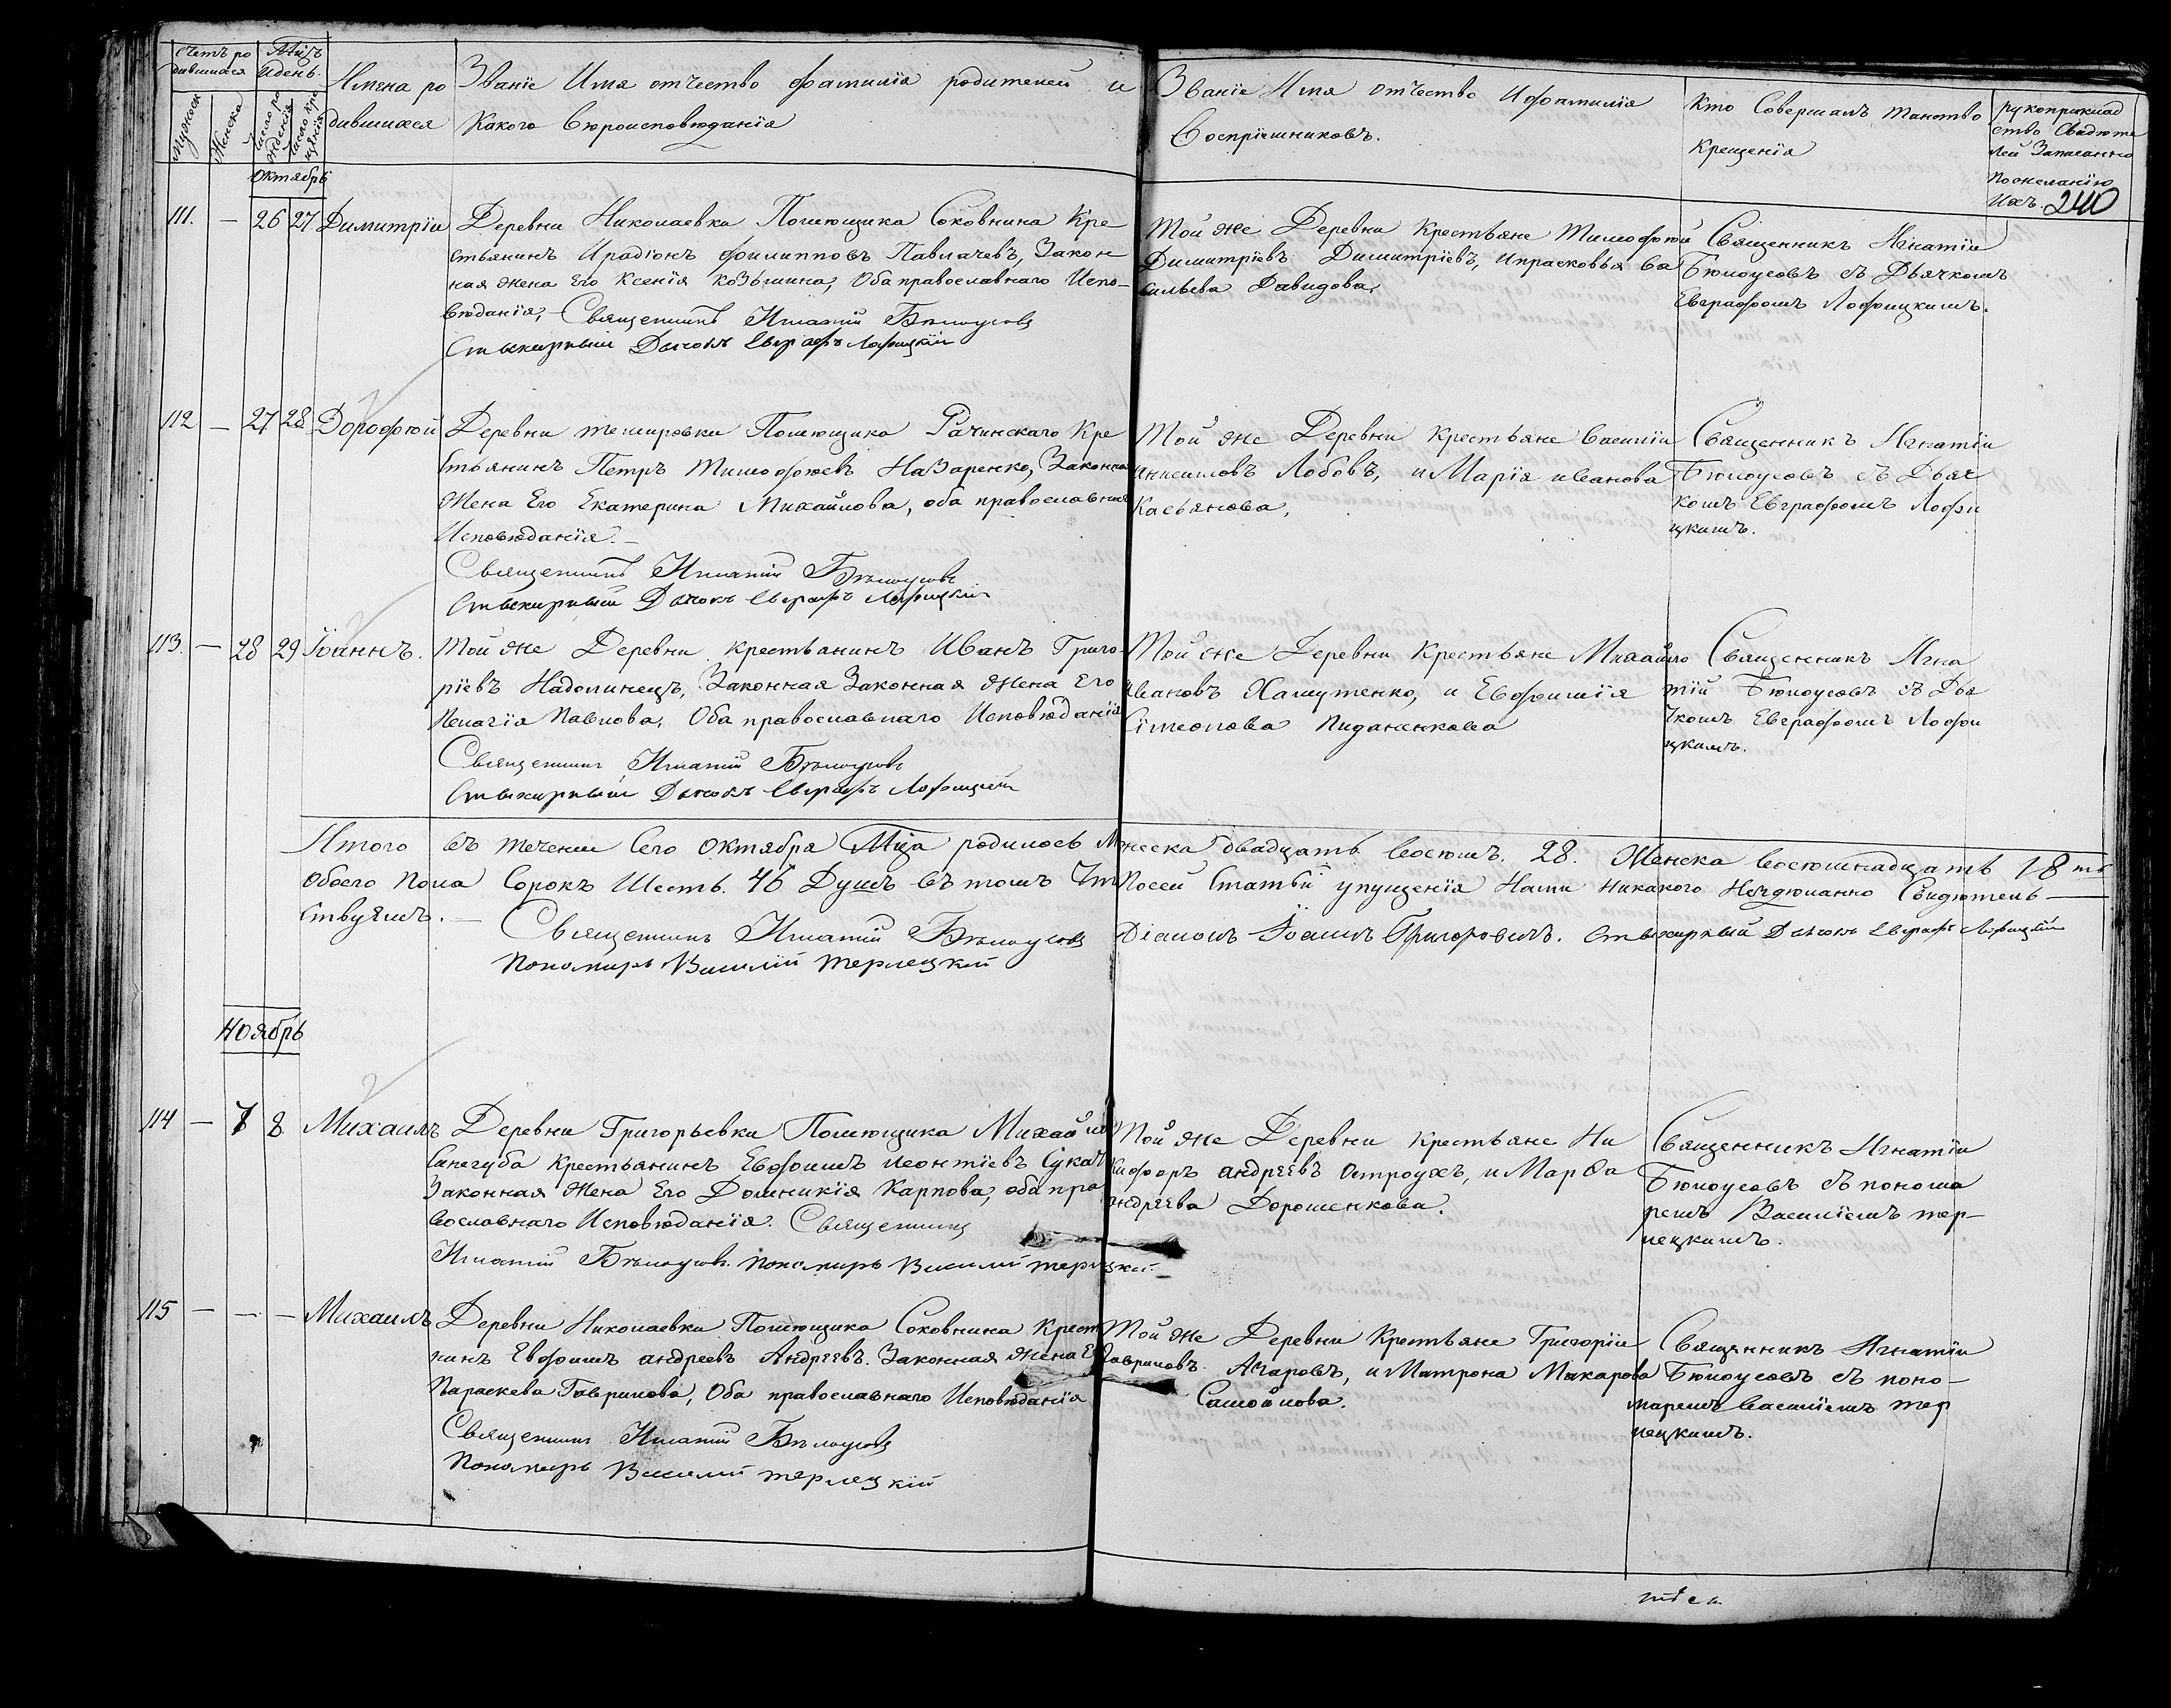 Счетъ ро
дившихся
Мѣцъ
и день.
Мужеск
Женска
Число ро
жденія
Число кре
щенія
Имена ро
дившихся
Званіе Имя отчество фамилія родителей и
Какого Вѣроисповѣданія
Званіе Имя отчество и фамилія
Воспріемниковъ.
Кто Совершалъ таинство
Крещенія
рукоприклад
ство Свидѣте
лей Записанно
по желанію
Ихъ. 240
октябрь
111. — 26 27 Димитрій
Деревни Николаевки Помѣщика Соковнина Кре
стьянинъ Иродіонъ филипповъ Павлачевъ, Закон
ная жена Его Ксенія козьмина, Оба православнаго Испо–
вѣданія, – Священникъ Игнатій Бѣлоусовъ
Стихирный Дьячокъ Евграфъ Лофицкій
Той же Деревни Крестьяне Тимофѣй
Димитріевъ Димитріевъ, и прасковья Ва
сильева Давидова,
Священникъ Игнатій
Бѣлоусовъ съ Дьячкомъ
Евграфомъ Лофицкимъ.
112 — 27 28 Дорофѣй
Деревни темировки Помѣщика Рачинскаго Кре
стьянинъ Петръ Тимофѣевъ Назаренко, Законна
Жена Его Екатерина Михайлова, оба православна
Исповѣданія. –
Священникъ Игнатій Бѣлоусовъ
Стихирный Дьячокъ Евграфъ Лофицкій
Той же Деревни крестьяне Василій
анисимовъ Лобовъ, и Марія иванова
Касьянова,
Священникъ Игнатій
Бѣлоусовъ съ Дьяч
комъ Евграфомъ Лофи
цкимъ.
113. — 28 29 Іоаннъ.
Той же Деревни крестьянинъ Иванъ Григо
ріевъ Надолинецъ, Законная Законная жена Его
Пелагія Павлова, Оба православнаго Исповѣданія
Священникъ Игнатій Бѣлоусовъ
Стихирный Дьячокъ Евграфъ Лофицкій
Той же Деревни Крестьяне Михайло
ивановъ Хамутенко, и Евфимія
Сімеонова Пиданенкова
Священникъ Игна
тій Бѣлоусовъ съ Дья
чкомъ Евграфомъ Лофи
цкимъ.
Итого въ теченіи Сего Октября Мца родилось Мужеска двадцать восемь. 28. Женска восемнадцать 18ть
обоего пола Сорокъ Шесть. 46 Душъ въ томъ Что По сей Статьи упущенія Нами никакого Неучинанно Свидѣтель–
ствуемъ. – Священникъ Игнатій Бѣлоусовъ Діаконъ Іоаннъ Григоровичъ. Стихирный Дьячокъ Евграфъ Лофицкій
Пономарь Василій Терлецкій
Ноябрь
114 — 7 8 Михаилъ
Деревни Григорьевки Помѣщика Михайло
Синегуба крестьянинъ Евфимъ леонтіевъ Сукач
Законная Жена Его Домникія Карпова, оба пра
вославнаго Исповѣданія. Священникъ
Игнатій Бѣлоусовъ. пономарь Василій терлецкій
Той же Деревни крестьяне Ни
кифоръ андрѣевъ Остроухъ, и Марѳа
андрѣева Дорошенкова.
Священникъ Игнатій
Бѣлоусовъ съ понома
ремъ Василіемъ тер–
лецкимъ.
115 — — — Михаилъ
Деревни Николаевки Помѣщика Соковнина Крест
нинъ Евфимъ андреевъ Андрѣевъ. Законная жена Е
Параскева Гаврилова, Оба православнаго Исповѣданія
Священникъ Игнатій Бѣлоусовъ
Пономарь Василій терлецкій
Той же Деревни Крестьяне Григорій
Гавриловъ Азаровъ, и Матрона Макарова
Самойлова.
Священникъ Игнатій
Бѣлоусовъ съ поно–
маремъ Василіемъ тер
лецкимъ.